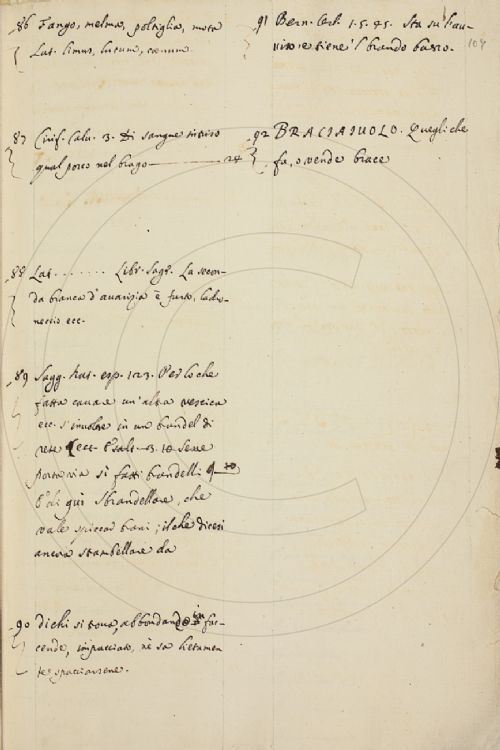 86 Fango, melma, poltiglia, mota
Lat. limus, lutum, cœnum.
87 Cirif. Calv. 3. Di sangue intriso
qual porco nel brago
88 Lat. . . . . . . . Libr. Sagr. La secon-
da branca d'avarizia è furto, ladro-
neccio ecc.
89 Sagg. nat. esp. 123. Perloche
fatta cavare un'altra vescica
ecc. s'involse in un brandel di
rete ecc. 3. 10
porta via sì fatti brandelli
E di quì Sbrandellare, che
vale spiccar brani; il che dicesi
ancora stambellare da
90 dichi si trova, abbondando in fac-
cende, impacciato, nè sa lietamen
te spacciarsene.
91 Bern. Orl. 1. 5. 45. Sta su l'au-
viso e tiene'l brando basso.
104
92 BRACIAIUOLO. Quegli che
fa, o vende brace